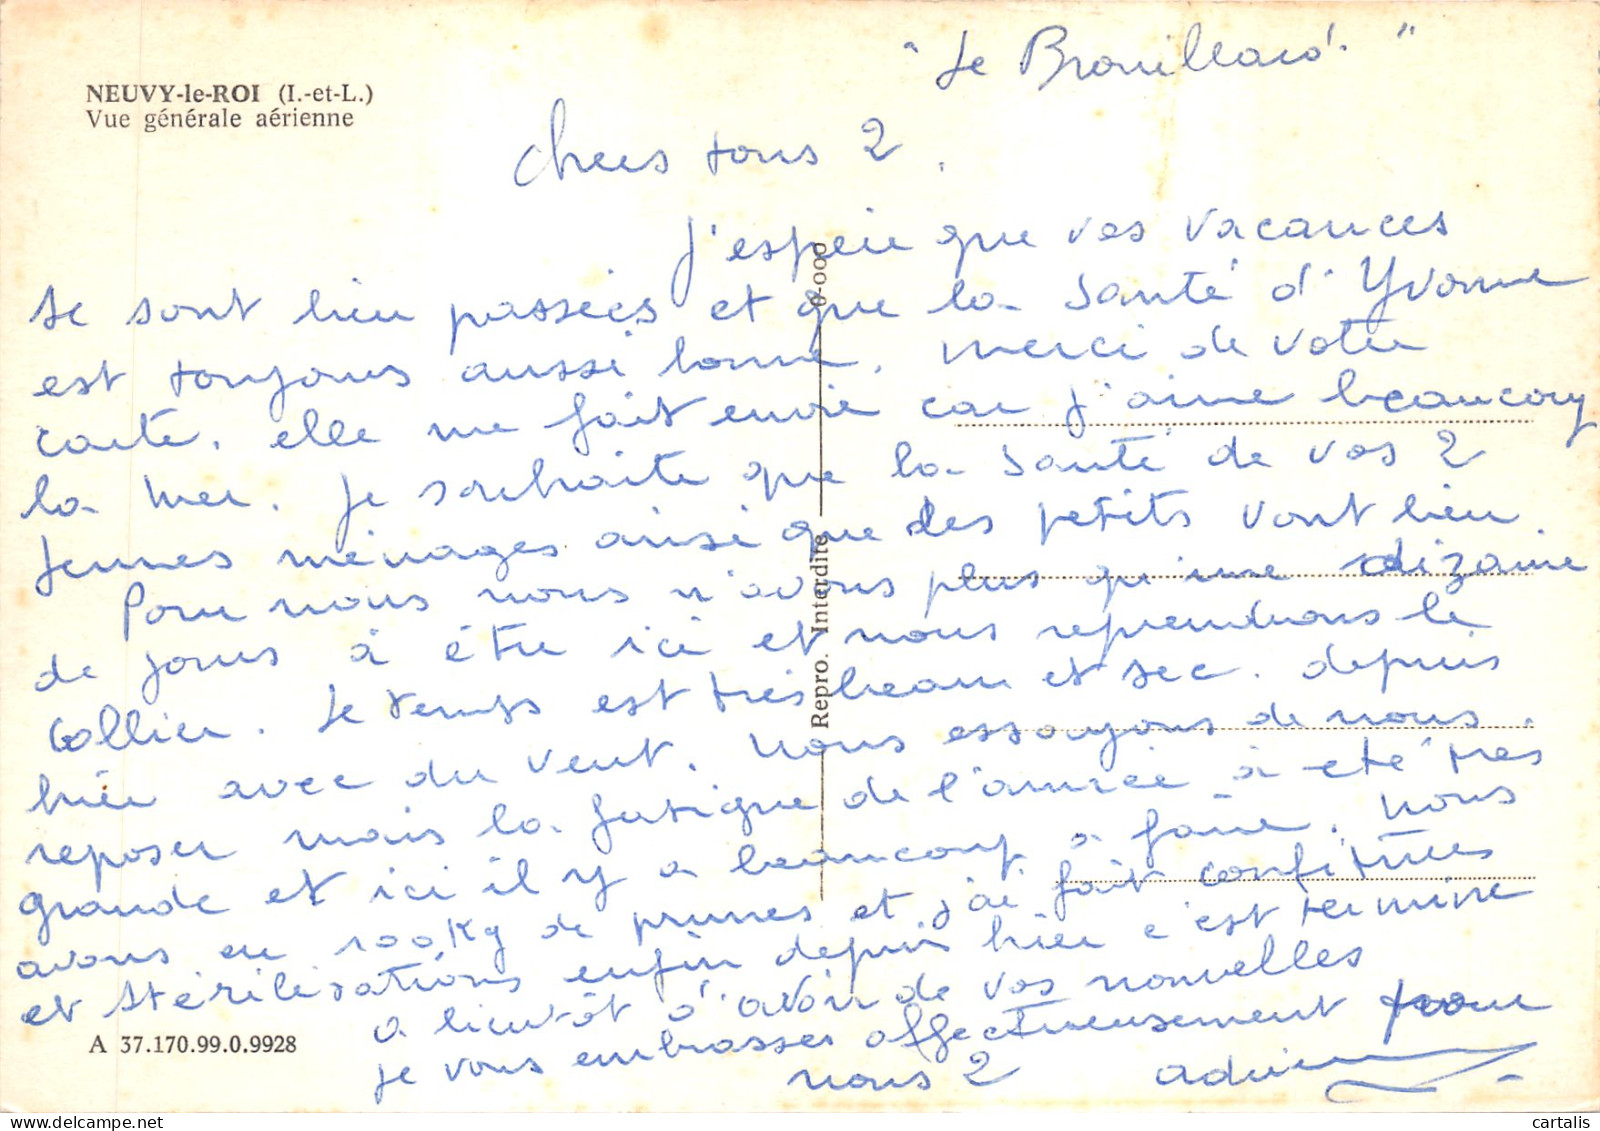 NEUVY-le-ROI (I.-et-L.)
Vue générale aérienne
"Le Brouillard."
Chers tous 2.
J'espère que vos vacances
se sont bien passées et que la santé d'Yvonne
est toujours aussi bonne. Merci de votre
carte. elle me fait envie car j'aime beaucoup
la mer. Je souhaite que la santé de vos 2
jeunes ménages ainsi que des petits vont bien.
Pour nous nous n'avons plus qu'une dizaine
de jours à être ici et nous reprendrons le
collier. Le temps est très beau et sec. depuis
hier avec du vent. Nous essayons de nous
reposer mais la fatigue de l'année à été très
grande et ici il y a beaucoup à faire. Nous
avons eu 100 Kg de prunes et j'ai fait confitures
et stérilisations enfin depuis hier c'est terminé
a bientôt d'avoir de vos nouvelles
je vous embrasses affectueusement pour
nous 2
A 37.170.99.0.9928
Repro. Interdite
0-000
cartalis